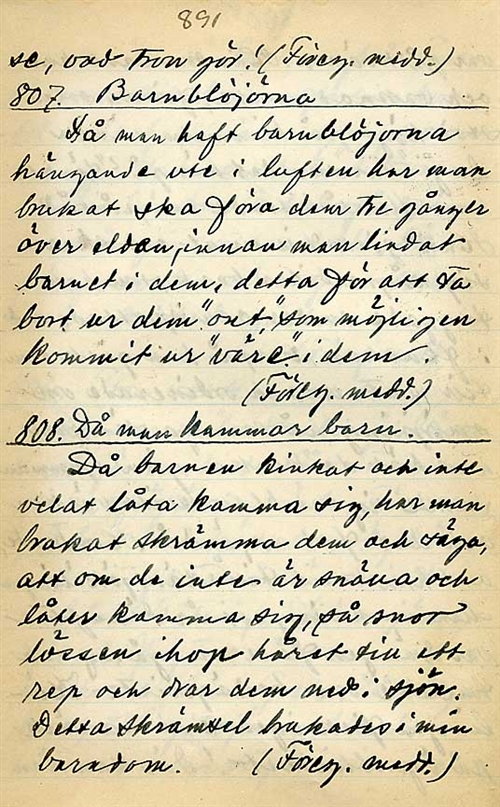 891
se, vad tron gör! (Föreg. medd.)
807. Barnblöjorna
Då man haft barnblöjorna
hängande ute i luften har man
brukat ska föra dem tre gånger
över elden, innan man lindat
barnet i dem, detta för att ta
bort ur dem "ont," som möjligen
kommit ur "väre" i dem.
(Föreg. medd.)
808. Då man kammar barn.
Då barnen kinkat och inte
velat låta kamma sig, har man
brukat skrämma dem och säga,
att om de inte är snälla och
låter kamma sig, så snor
lössen ihop håret till ett
rep och drar dem ned i sjön.
Detta skrämsel brukades i min
barndom. (Föreg. medd.)